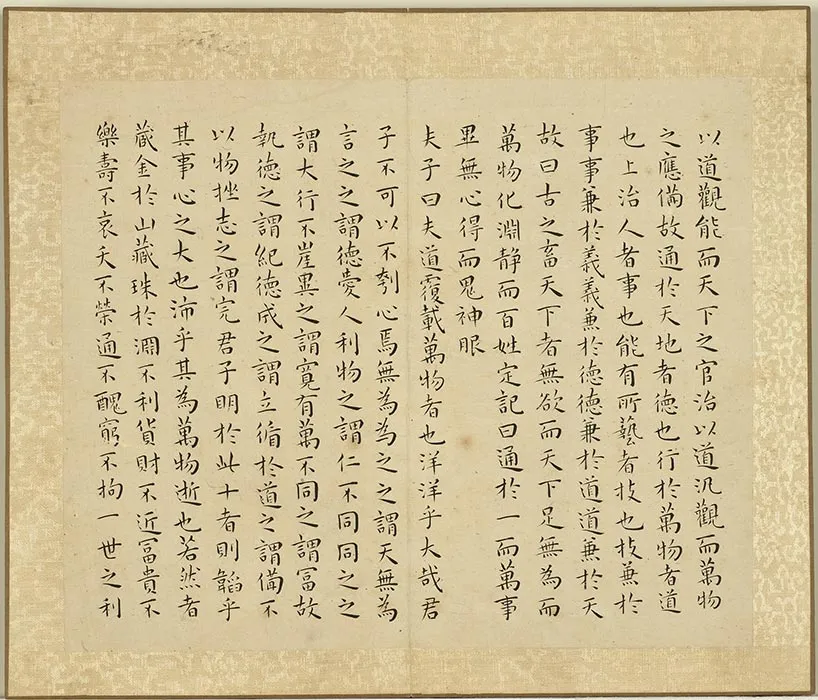 以道觀能而天下之官治以道汎觀而萬物
之應備故通於天地者德也行於萬物者道
也上治人者事也能有所藝者技也技兼於
事事兼於義義兼於德德兼於道道兼於天
故曰古之畜天下者無欲而天下足無為而
萬物化淵靜而百姓定記曰通於一而萬事
畢無心得而鬼神服
夫子曰夫道覆載萬物者也洋洋乎大哉君
子不可以不刳心焉無為為之之謂天無為
言之之謂德愛人利物之謂仁不同同之之
謂大行不崖異之謂寬有萬不同之謂富故
執德之謂紀德成之謂立循於道之謂備不
以物挫志之謂完君子明於此十者則韜乎
其事心之大也沛乎其為萬物逝也若然者
藏金於山藏珠於淵不利貨財不近富貴不
樂壽不哀夭不榮通不醜窮不拘一世之利